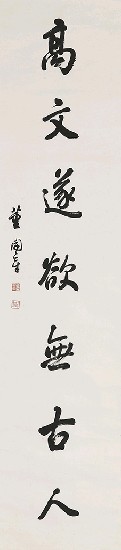 高文遂欲無古人
董